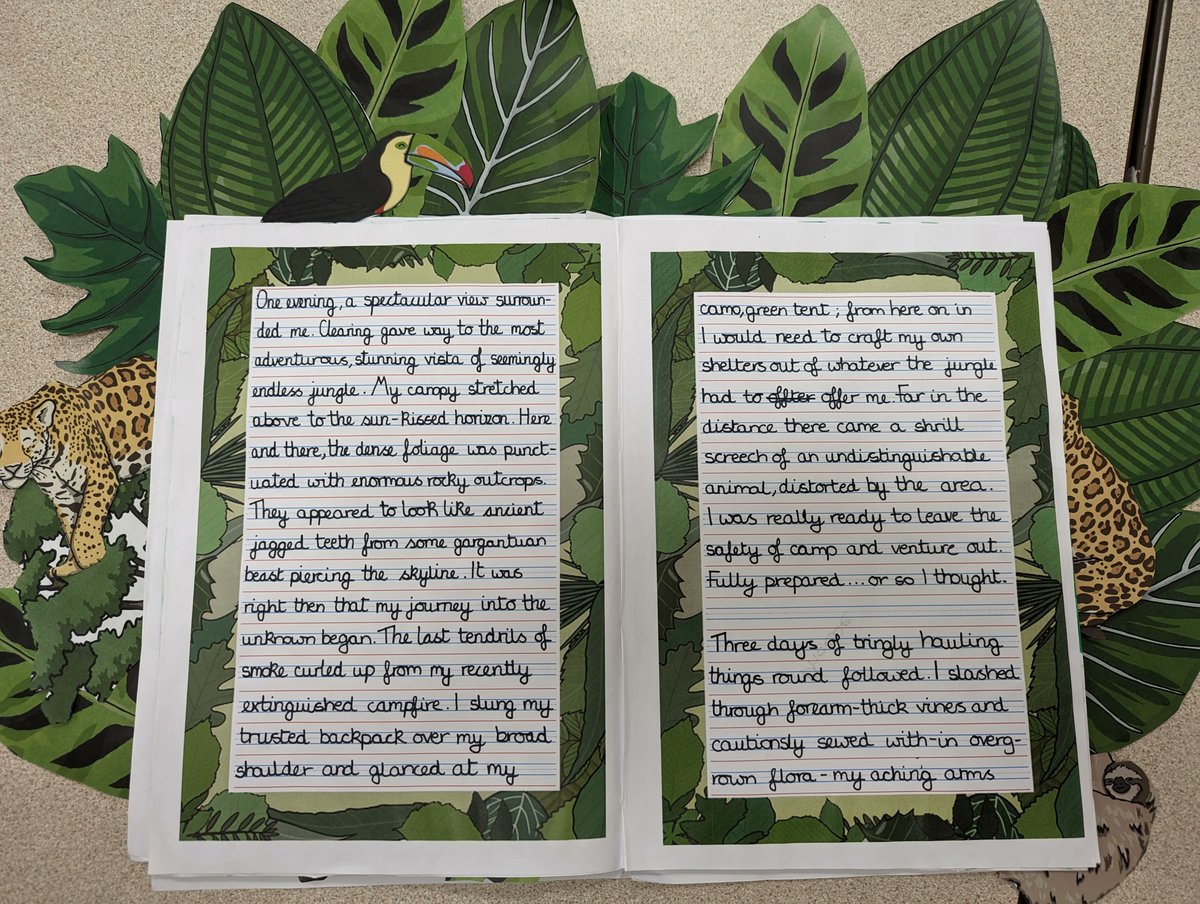 One evening, a spectacular view surroun-
ded me. Clearing gave way to the most
adventurous, stunning vista of seemingly
endless jungle. My campy stretched
above to the sun-kissed horizon. Here
and there, the dense foliage was punct-
uated with enormous rocky outcrops.
They appeared to look like ancient
jagged teeth from some gargantuan
beast piercing the skyline. It was
right then that my journey into the
unknown began. The last tendrils of
smoke curled up from my recently
extinguished campfire. I slung my
trusted backpack over my broad
shoulder and glanced at my
camo, green tent; from here on in
I would need to craft my own
shelters out of whatever the jungle
had to offer me. Far in the
distance there came a shrill
screech of an undistinguishable
animal, distorted by the area.
I was really ready to leave the
safety of camp and venture out.
Fully prepared... or so I thought.
Three days of tringly hauling
things round followed. I slashed
through foream-thick vines and
cautionsly sewed with-in overg-
rown flora - my aching arms